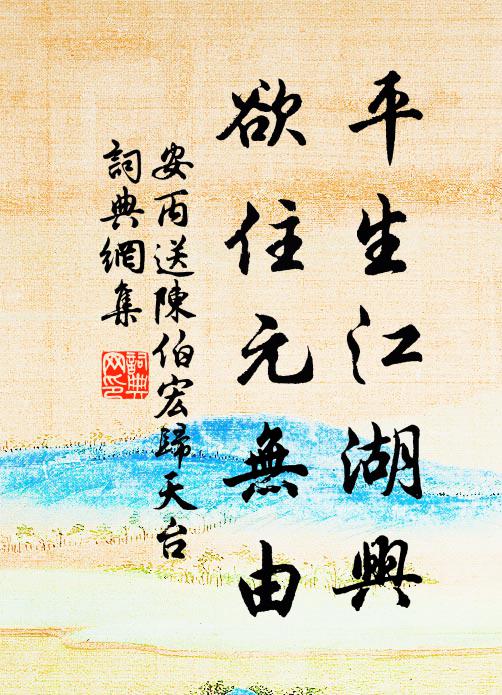 平生江湖興
欲住元無由
安丙送陳伯宏歸天台
詞典網集
詞典网印